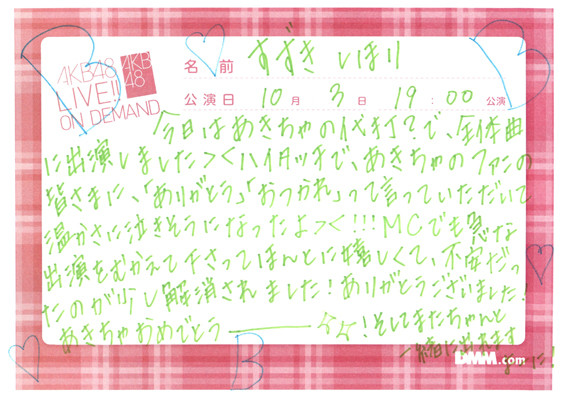 AKB48
LIVE!!
ON DEMAND
AKB
48
名前 すずき しほり
公演日 10月 3日 19:00 公演
今日はあきちゃの代打?で、全体曲
に出演しました><ハイタッチで、あきちゃのファンの
皆さまに、「ありがとう」「おつかれ」って言っていただいて
温かさに泣きそうになったよ><!!!MCでも急な
出演をむかえて下さってほんとに嬉しくて、不安だっ
たのが少し解消されました!ありがとうございました!
あきちゃおめでとうーーー☆☆!そしてまたちゃんと
一緒に出れます
ように!
B
B
B
DMM.com